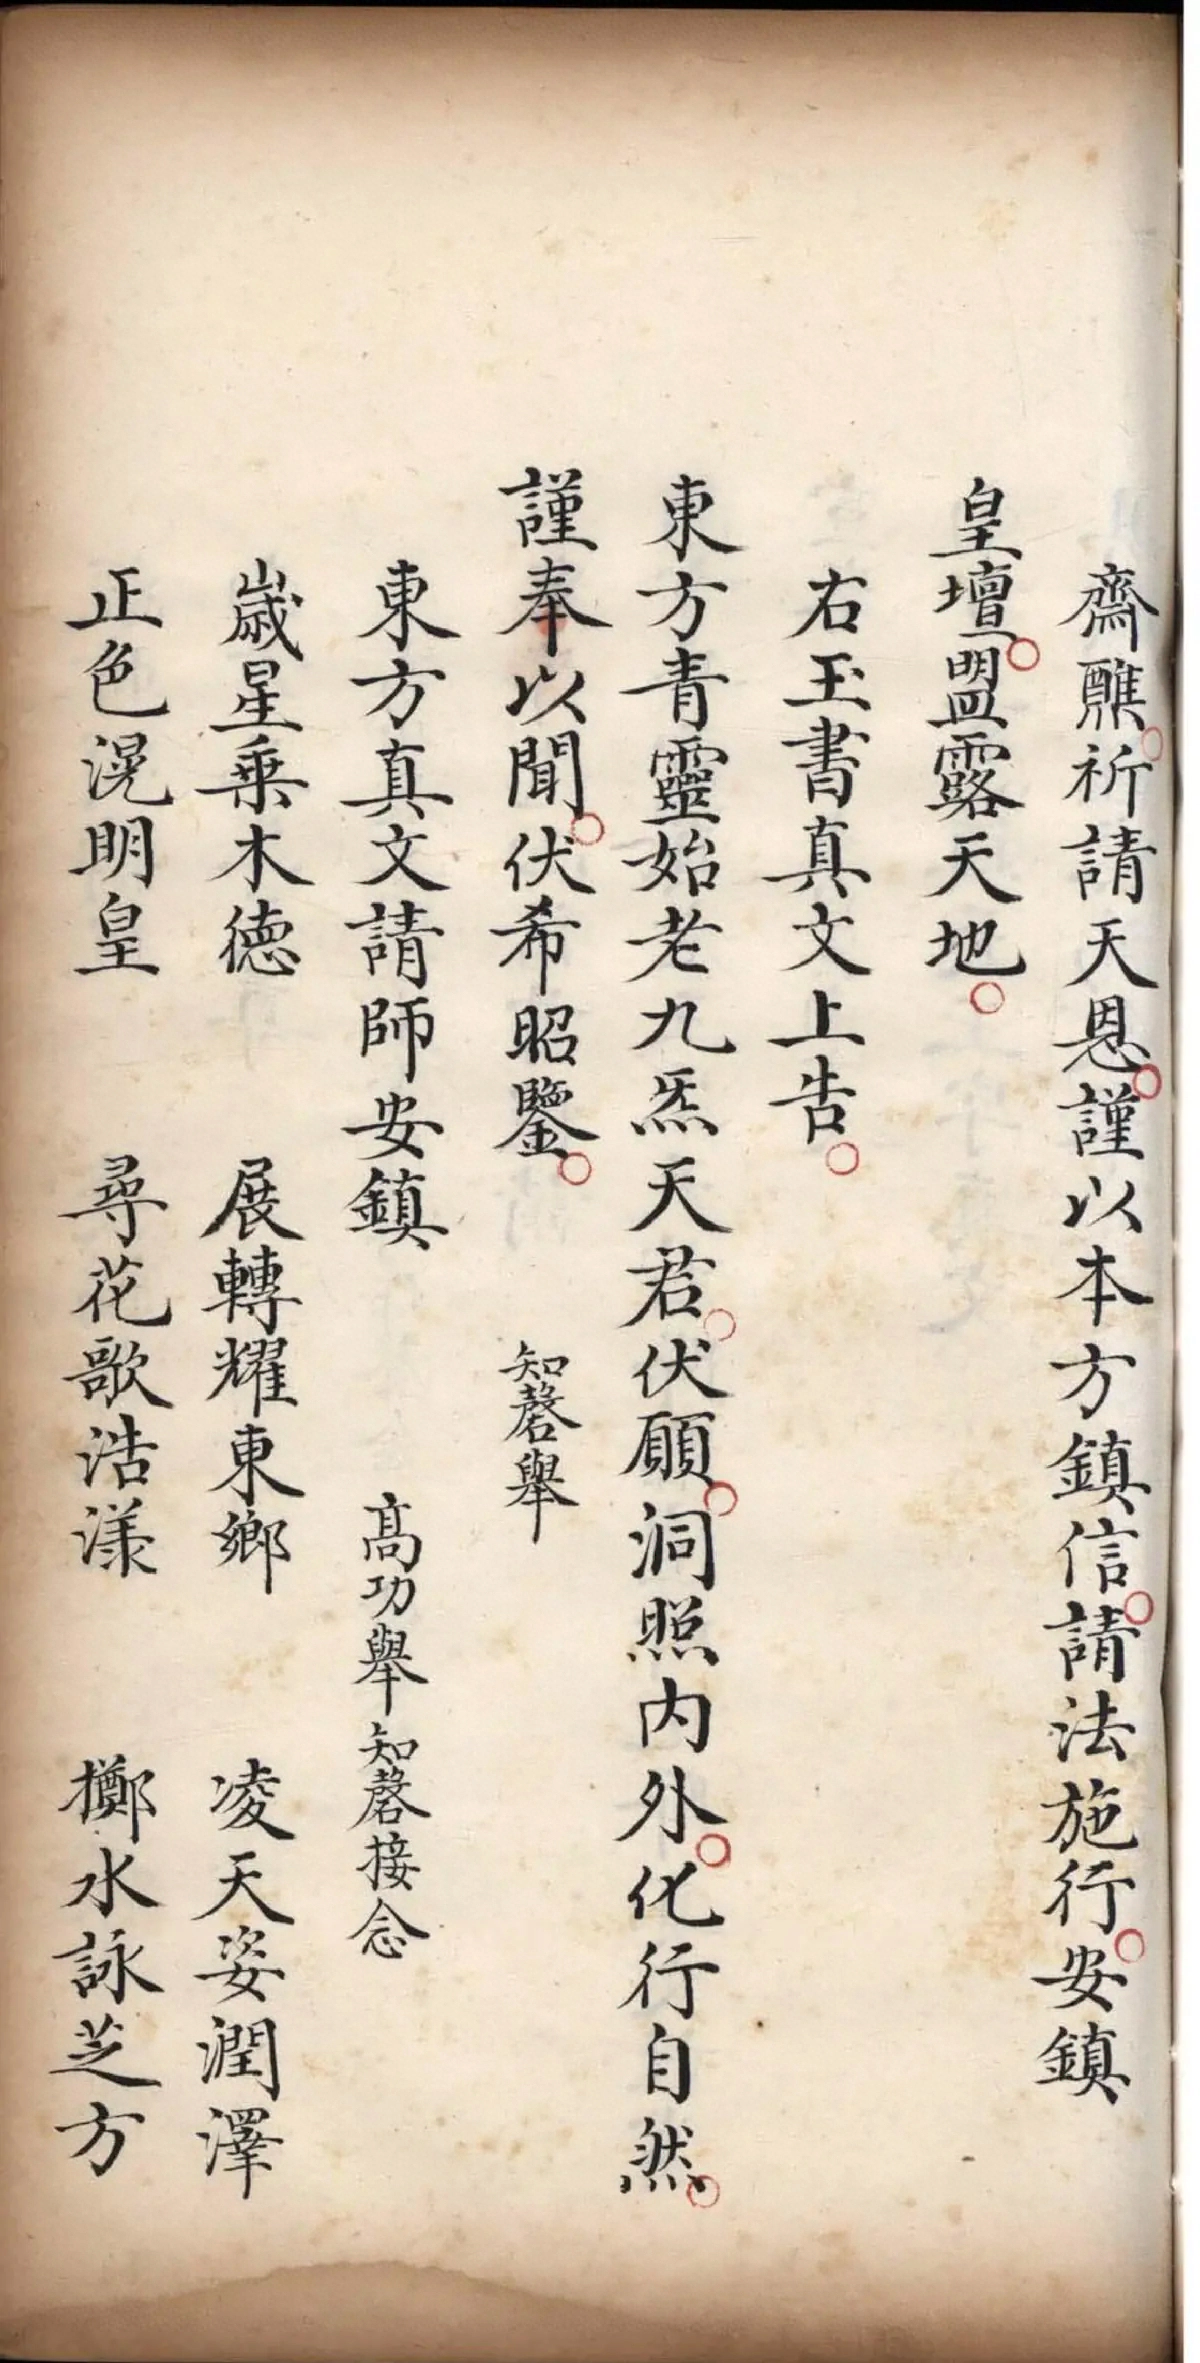 齋醮祈請天恩謹以本方鎮信請法施行安鎮
皇壇盟露天地
右玉書真文上告
東方青靈始老九炁天君伏願洞照内外化行自然
謹奉以聞伏希昭鑒 知磬舉
東方真文請師安鎮 高功舉知磬接念
歲星乗木德 展轉耀東鄉 凌天姿潤澤
正色滉明皇 尋花歌浩漾 擲水詠芝方